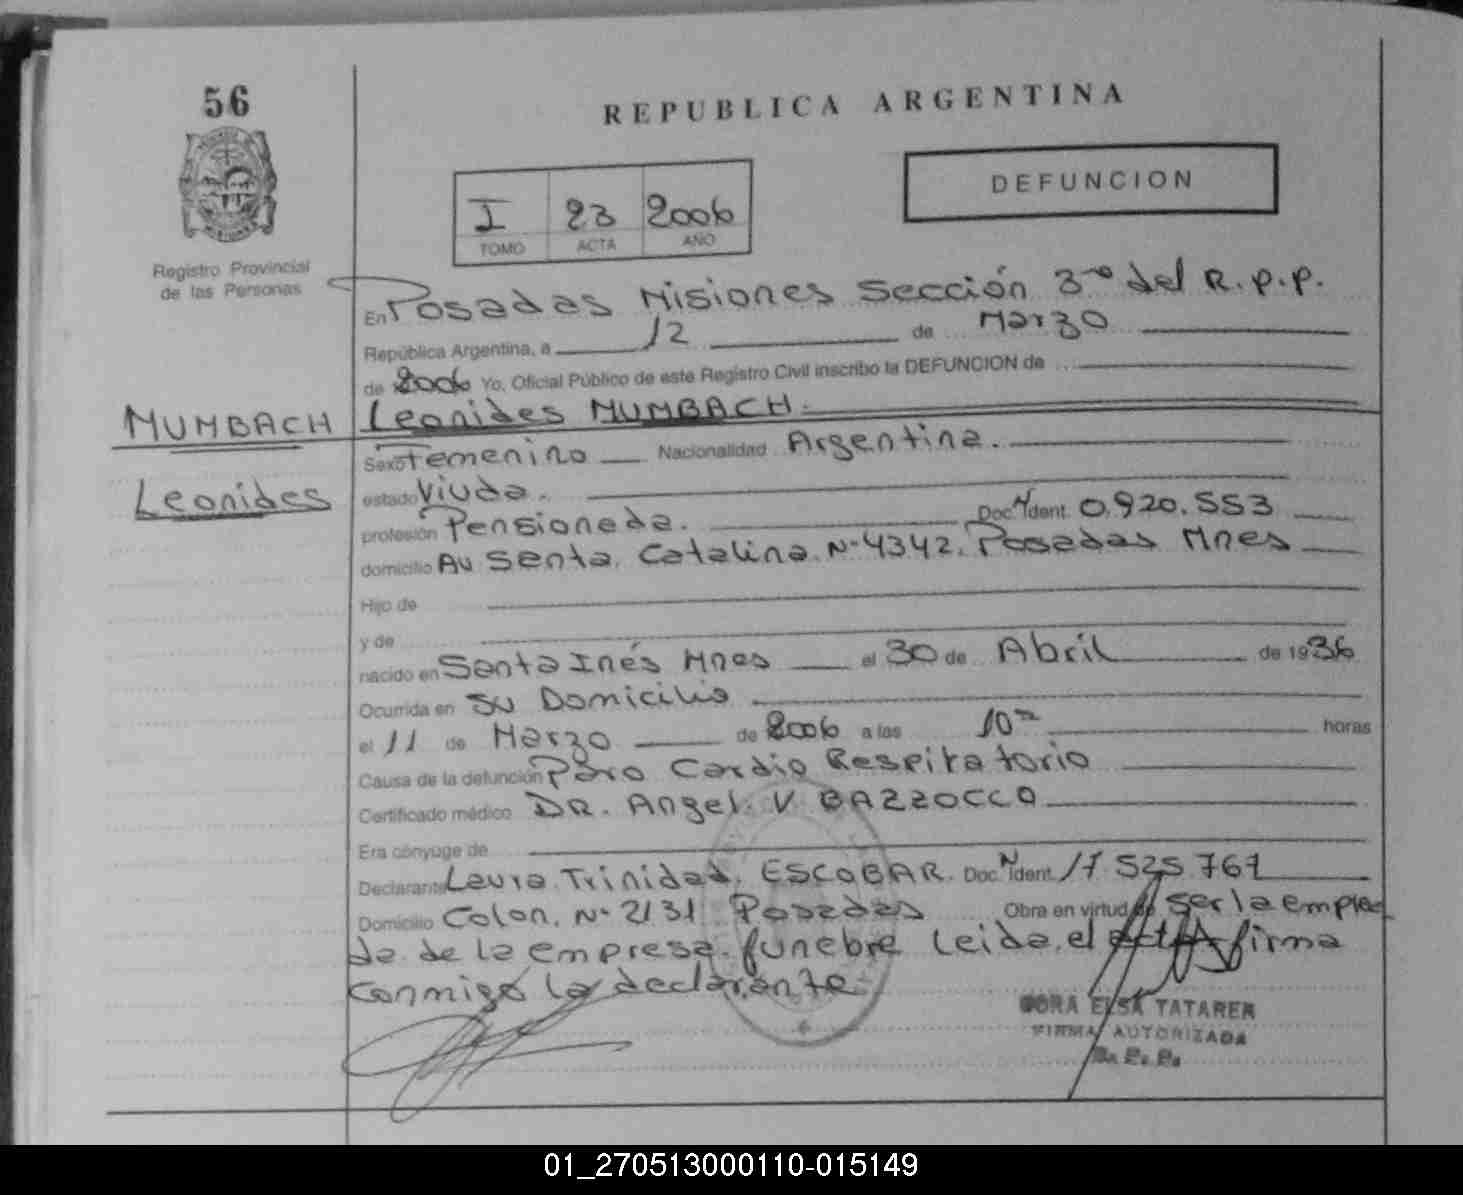 56
REPUBLICA ARGENTINA
DEFUNCION
I 23 2006
TOMO ACTA AÑO
Registro Provincial
de las Personas
En Posadas Misiones Sección 3ra del R.P.P.
República Argentina, a 12 de Marzo
de 2006 Yo, Oficial Público de este Registro Civil inscribo la DEFUNCION de
MUMBACH Leonides MUMBACH.
Sexo Femenino Nacionalidad Argentina.
Leonides
estado Viuda.
profesión Pensionada. Doc. N Ident. 0.920.553
domicilio Av Santa Catalina Nº 4342. Posadas Mnes
Hijo de
y de
nacido en Santa Inés Mnes el 30 de Abril de 1936
Ocurrida en su Domicilio
el 11 de Marzo de 2006 a las 10 horas
Causa de la defunción Paro Cardio Respiratorio
Certificado médico DR. Angel V BAZZOCCO
Era cónyuge de
Declarante Laura Trinidad ESCOBAR. Doc. N Ident. 17 525 767
Domicilio Colon. Nº 2131 Posadas Obra en virtud de ser la emplea
da de la empresa funebre Leida el acta firma
conmigo la declarante
DORA ELSA TATAREN
FIRMA AUTORIZADA
01_270513000110-015149